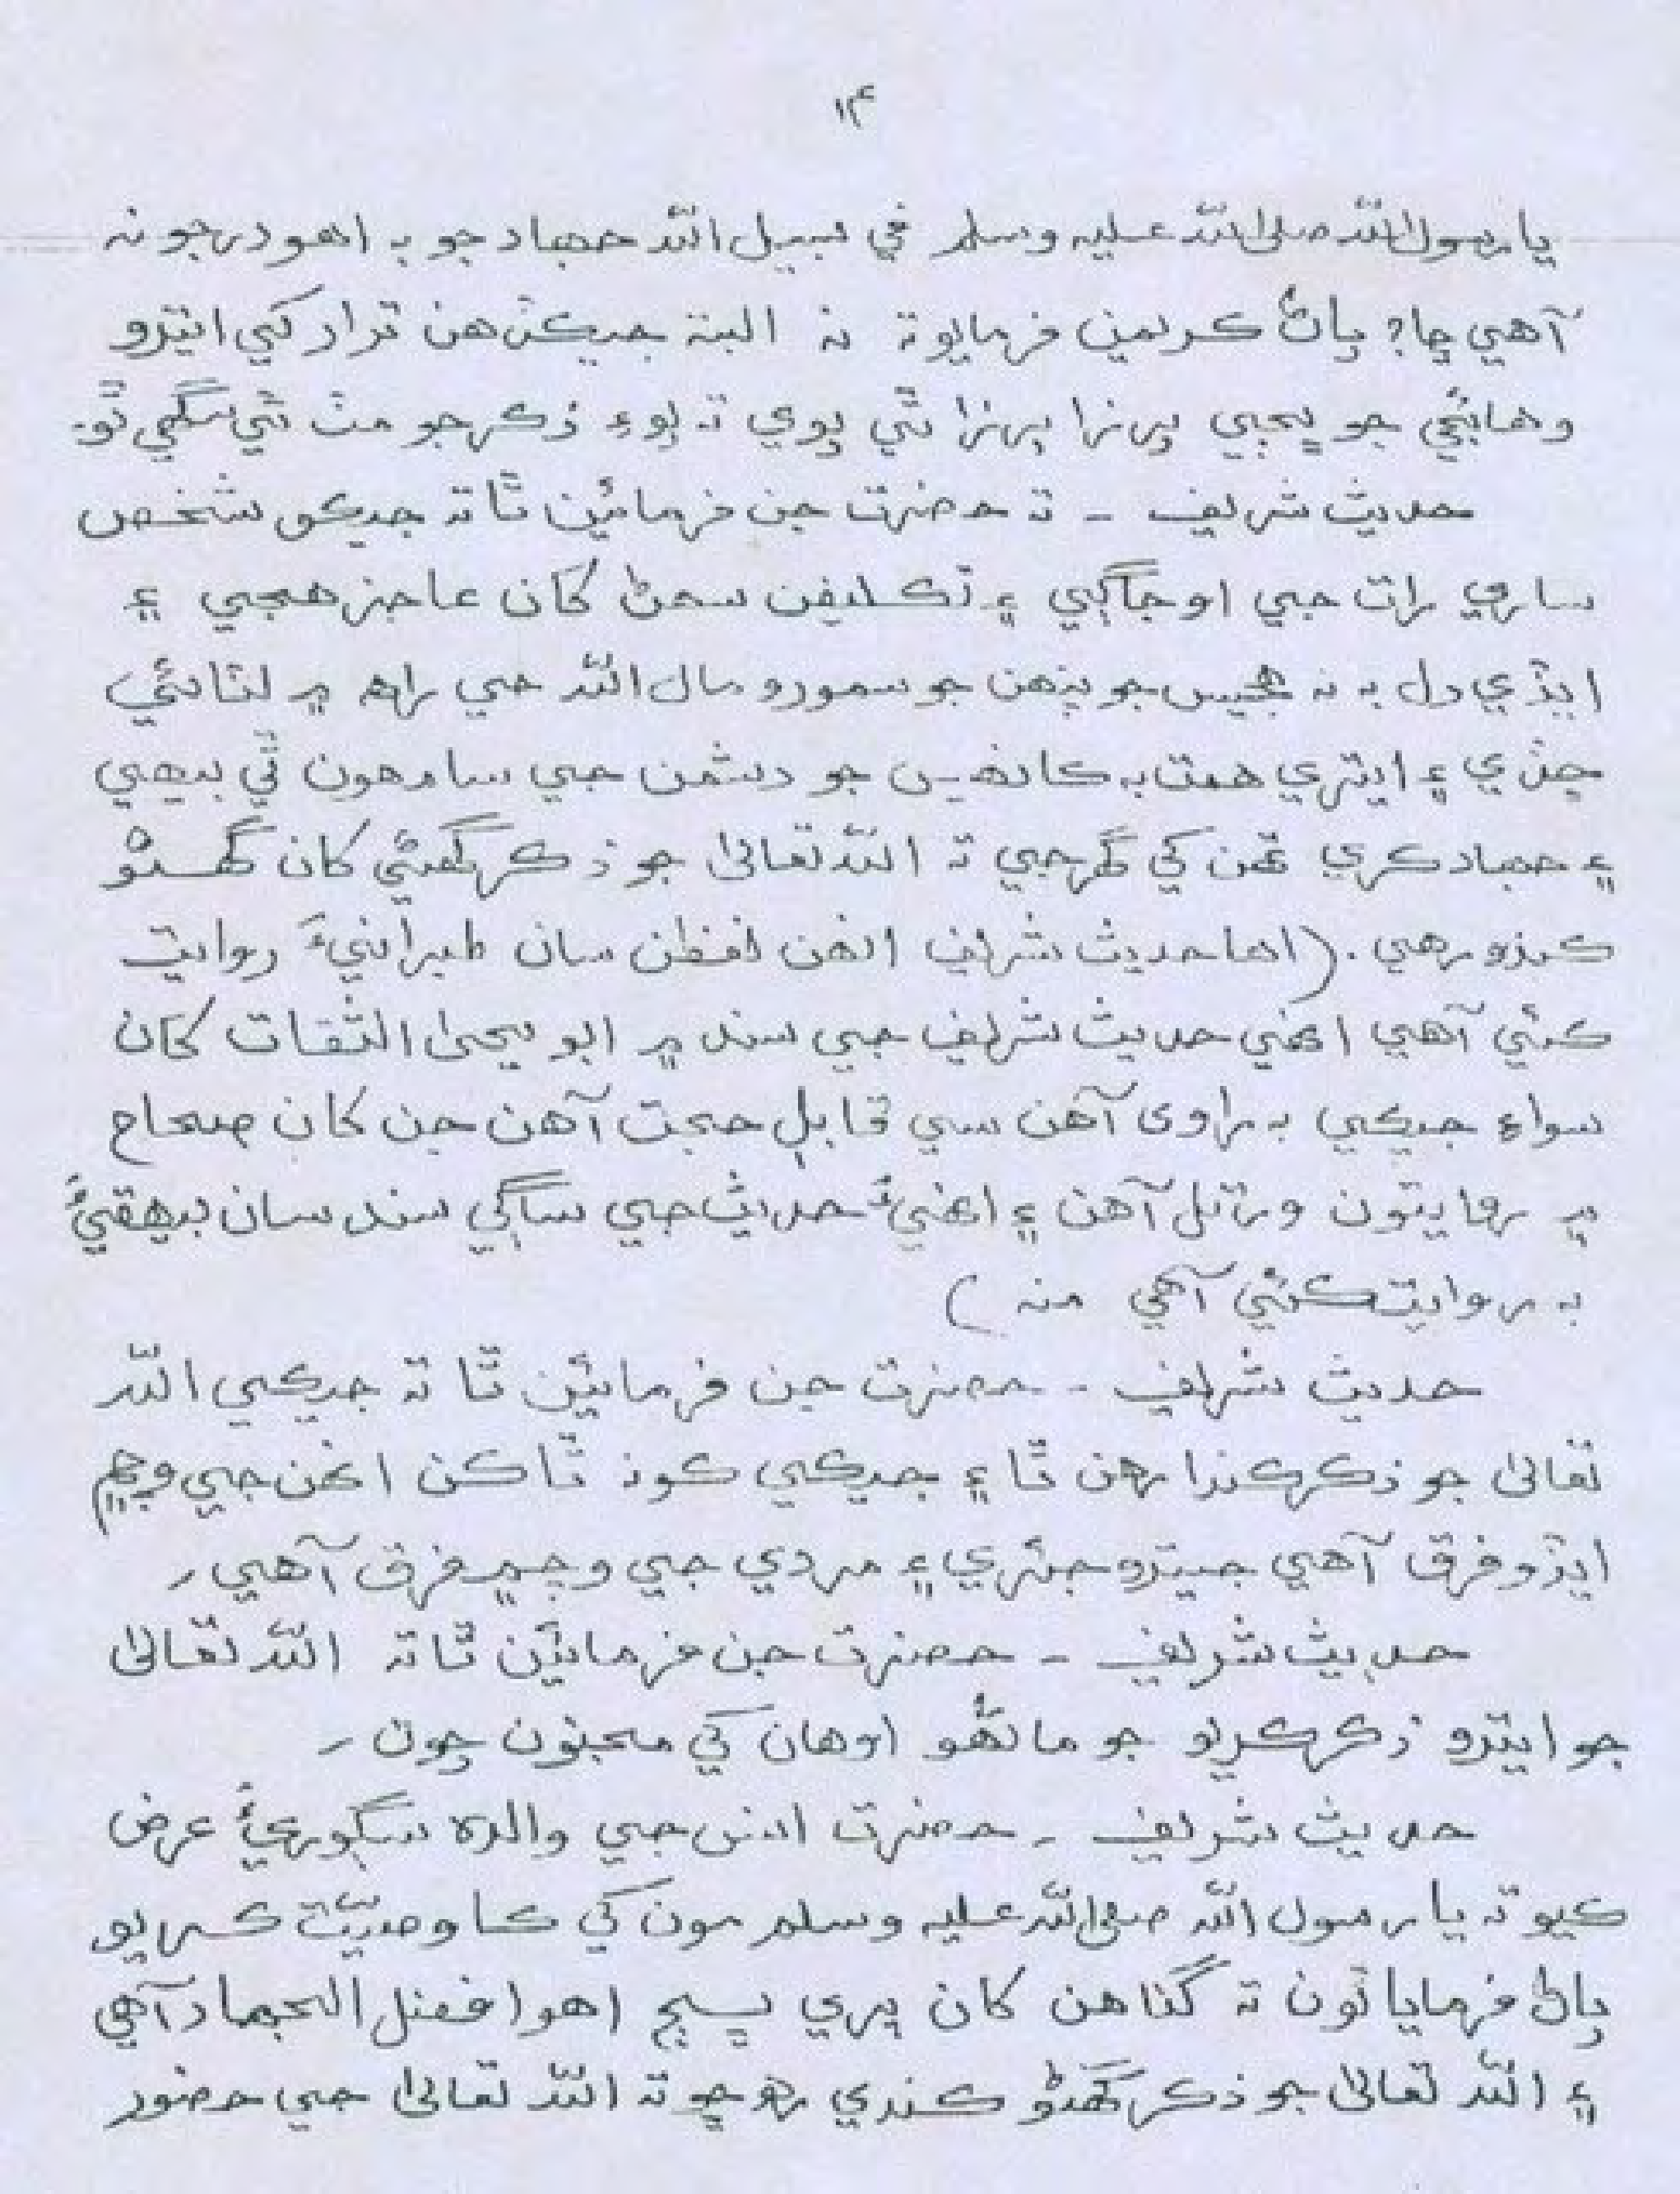 ۱۴
يا رسول الله صلى الله عليه وسلم في سبيل الله جهاد جو به اهو درجو نه
آهي ڇا؟ پاڻ ڪريمن فرمايو ته نه البته جيڪڏهن ترار کي ايترو
وهائجي جو ڀڄي پرزا پرزا ٿي پوي ته پوءِ ذڪر جو مٽ ٿي سگهي ٿو.
حديث شريف - ته حضرت جن فرمائين ٿا ته جيڪو شخص
ساري رات جي اوجاڳي ۽ تڪليفن سهڻ کان عاجز هجي ۽
ايڏي دل به نه هجيس جو پنهن جو سمورو مال الله جي راهه ۾ لٽائي
ڇڏي ۽ ايتري همت به ڪانهيس جو دشمن جي سامهون ٿي بيهي
۽ جهاد ڪري تهن کي گهرجي ته الله تعالى جو ذڪر گهڻي کان گهڻو
ڪندو رهي. (اها حديث شريف انهن لفظن سان طبرانيءَ روايت
ڪئي آهي انهي حديث شريف جي سند ۾ ابو يحيٰ الثقات کان
سواءِ جيڪي به راوي آهن سي قابلِ حجت آهن جن کان صحاح
۾ روايتون ورتل آهن ۽ انهيءَ حديث جي ساڳي سند سان بيهقيءَ
به روايت ڪئي آهي منه )
حديث شريف - حضرت جن فرمائين ٿا ته جيڪي الله
تعالى جو ذڪر ڪندا رهن ٿا ۽ جيڪي ڪونه ٿا ڪن انهن جي وچ ۾
ايڏو فرق آهي جيترو جيئري ۽ مردي جي وچ ۾ فرق آهي ۔
حديث شريف - حضرت جن فرمائين ٿا ته الله تعالى
جو ايترو ذڪر ڪريو جو ماڻهو اوهان کي مجنون چون ۔
حديث شريف - حضرت انس جي والده سڳوريءَ عرض
ڪيو ته يا رسول الله صلى الله عليه وسلم مون کي ڪا وصيّت ڪريو
پاڻ فرمايائون ته گناهن کان پري ڀڄ اهو افضل الجهاد آهي
۽ الله تعالى جو ذڪر گهڻو ڪندي رهه ڇو ته الله تعالى جي حضور